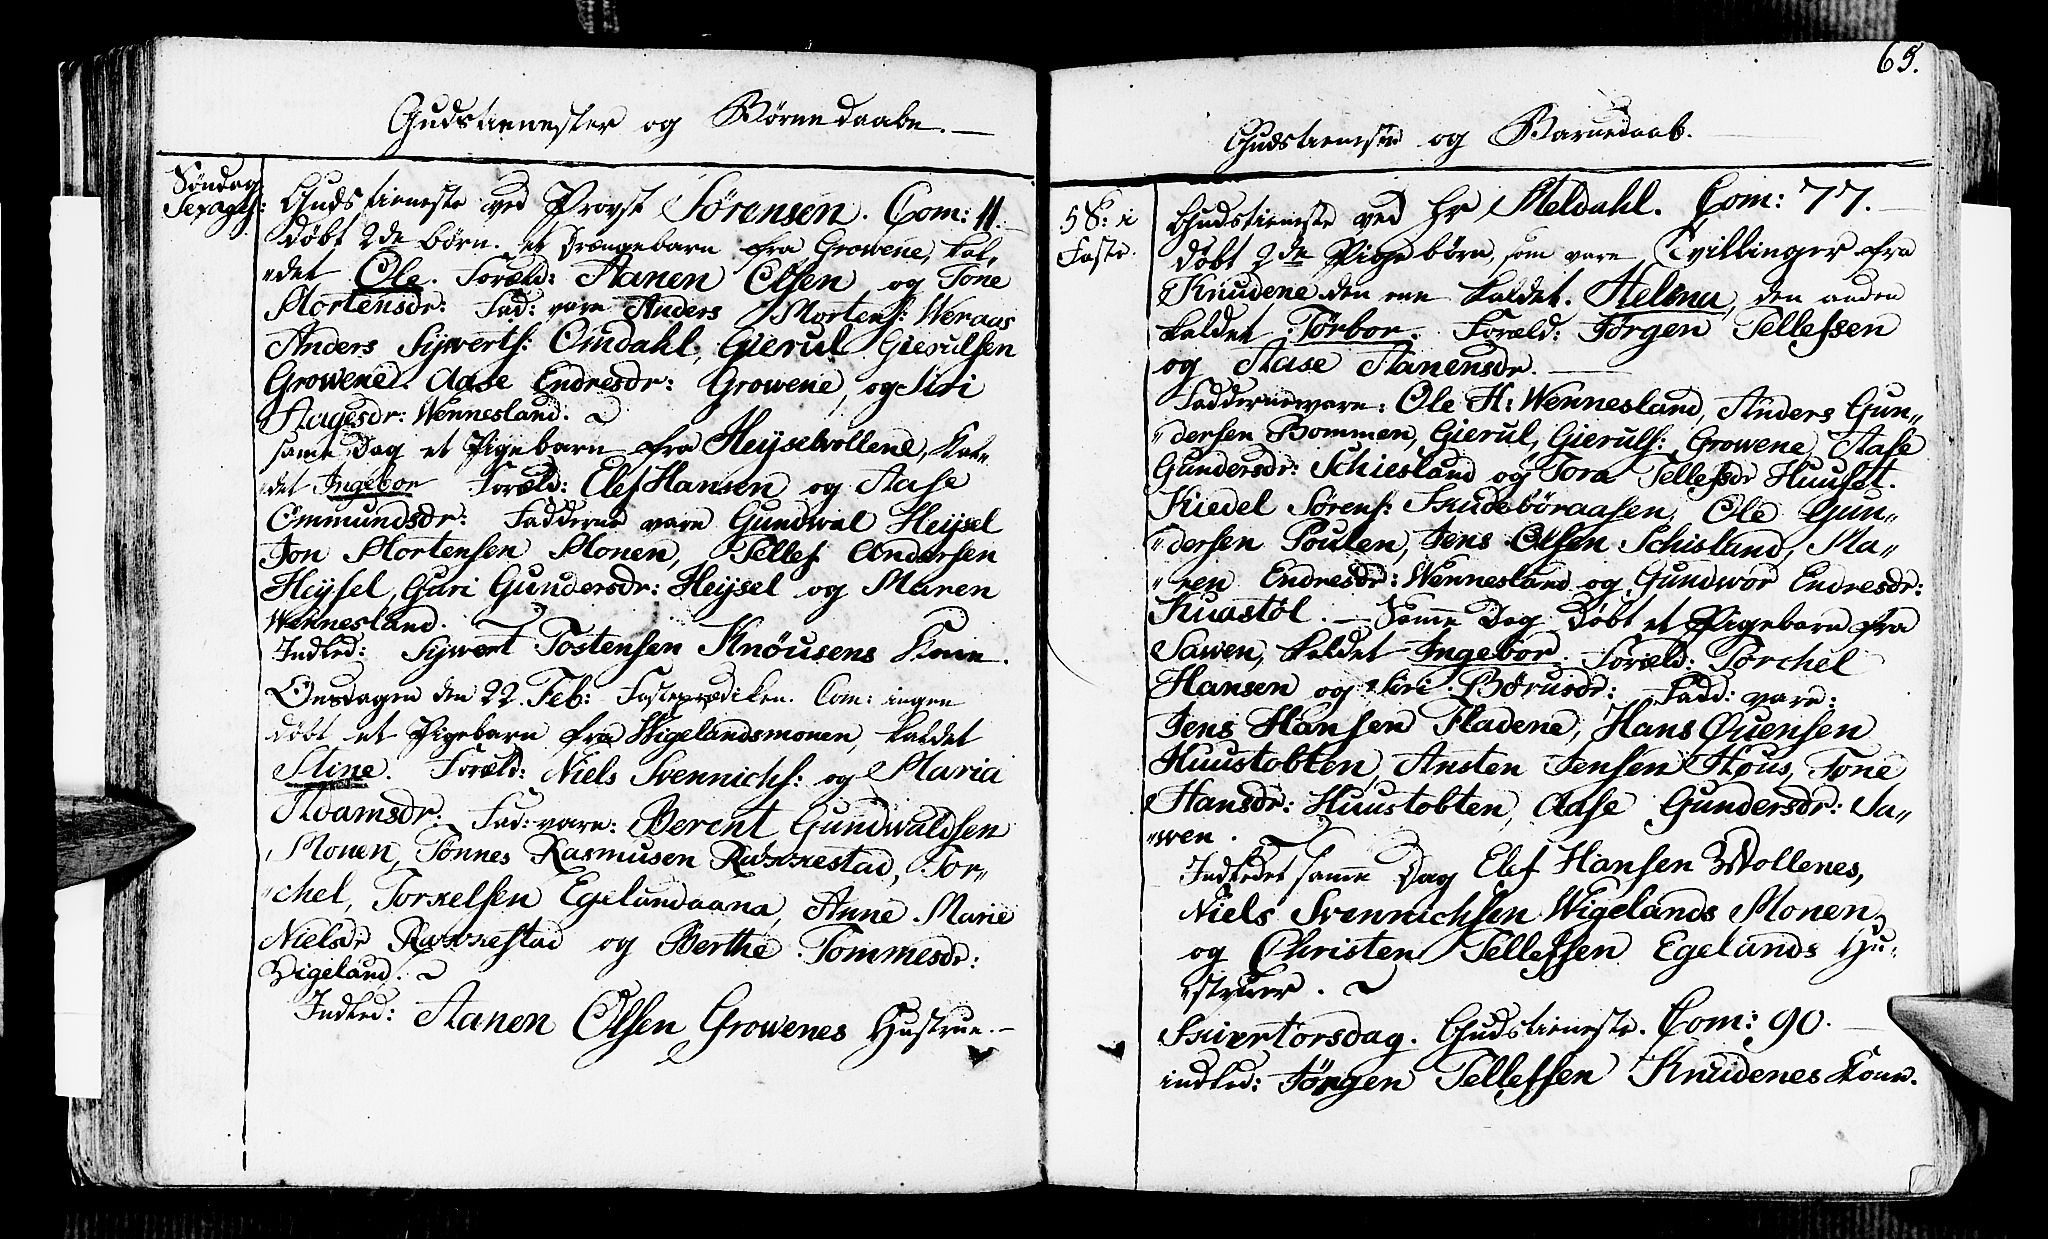 Gudstienester og Börnedaabe.
Söndag
Sexages:
Gudstieneste ved Provst Sörensen. Com: 11.
döbt 2de börn. et Drængebarn fra Growene, kal„
„det Ole. Foræld: Aanen Olsen og Tone
Mortensdr: Fad: vare Anders Mortens: Weraas
Anders Sywerts: Omdahl, Gierul Gierulsen
Growene. Aase Endresdr: Growene, og Siri
Aagesdr: Wennesland.
samme Dag et Pigebarn fra Heyselwollene, kal„
„det Ingebor Foræld: Elef Hansen og Aase
Ommundsdr: Fadderne vare Gundwal Heysel
Jon Mortensen Monen, Tellef Andersen
Heysel, Guri Gundersdr: Heysel og Maren
Wennesland.
Indled: Sywert Tostensen Knöusens Kone.
Onsdagen den 22. Feb: Fasteprædiken. Com: ingen
döbt et Pigebarn fra Wigelandsmonen, kaldet
Stine. Foræld: Niels Svennichs: og Maria
Adamsdr: Fad: vare: Berent Gundwaldsen
Monen, Tönnes Rasmusen Raxnestad, Tor„
„chel, Torkelsen Egelandaana, Anne Marie
Nielsdr Raxnestad og Berthe Tommesdr:
Vigeland.
Indled: Aanen Olsen Growenes Hustrue.
65.
Gudstieneste og Barnedaab.
5 S: i
Faste.
Gudstieneste ved Hr Meldahl. Com: 77.
döbt 2de Pigebörn, som vare Tvillinger fra
Knudene den ene kaldet. Helena, den anden
kaldet Törbor. Foræld: Jörgen Tellefsen
og Aase Aanensdr.
Fadderne vare: Ole H: Wennesland, Anders Gun„
„dersen Bommen, Gierul, Gieruls: Growene, Aase
Gundersdr: Schiesland og Tora Tellefsdr Huuset.
Kiedel Sörens: Knudeböraasen, Ole Gun„
„dersen Poulen, Jens Olsen Schisland, Ma„
„ren Endresdr: Wennesland og Gundwor Endresdr:
Kuastöl. Samme Dag döbt et Pigebarn fra
Sawen, kaldet Ingebor. Foræld: Torchel
Hansen og Siri Börusdr: Fadd: vare:
Jens Hansen Fladene, Hans Øuensen
Huustobten, Ansten Jensen Hous, Tone
Hansdr: Huustobten, Aase Gundersdr: Sa„
„wen.
Indledet samme Dag Elef Hansen Wollenes,
Niels Svennichsen Wigelands Monen
og Christen Tellefsen Egelands Hu„
„struer.
Skiertorsdag. Gudstieneste. Com: 90.
indled: Jörgen Tellefsen Knudenes Kone.